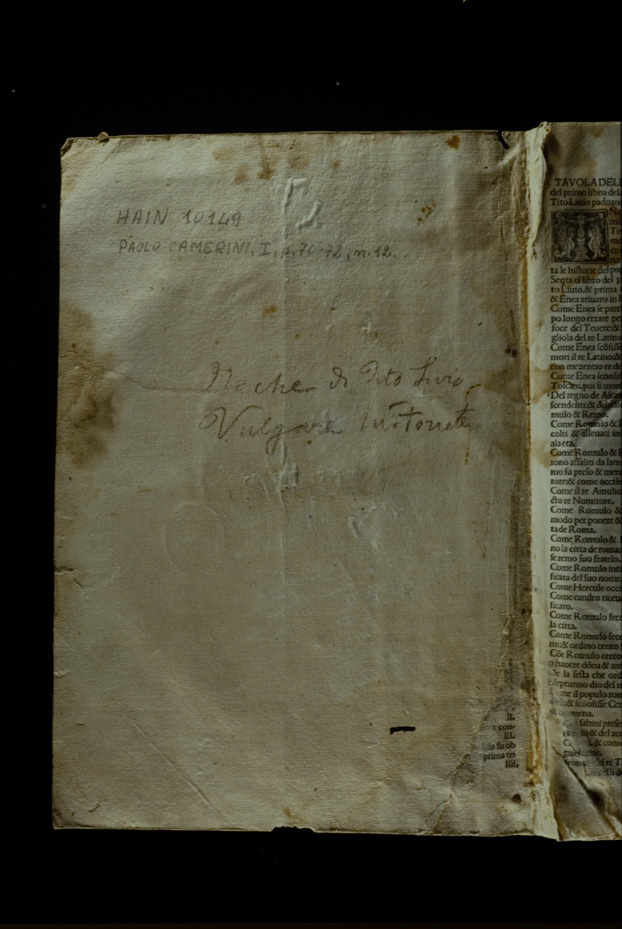 HAIN 10149
PAOLO CAMERINI, I, p. 70-72, n. 12.
Deche di Tito Livio
Vulgare
II.
con-
III.
su ob
prima tri
IIII.
TAVOLA DEL
del primo libro del
Tito Liuio padoan
ta le historie del po
Segta el libro del p
to Liuio. & prima
& Enea ariuaro in
Come Enea se part
po longo errare pe
foce del Teuere: &
gliola del re Latino
Come Enea scõfisse
mori il re Latino: &
con mezentio re de
Come Enea sconfis
Toscani, poi si mori
Del regno de Asca
scendẽti: & della
mulo & Remo.
Come Romulo & R
colti & alleuati in
ala eta.
Come Romulo & R
rono assaliti da latr
mo fu preso & men
torri: & come occise
Come il re Amulio
cto re Numitore.
Come Romulo &
modo per ponere &
ta de Roma.
Come Romulo & 
no la citta de roma
se remo suo fratelo.
Come Romulo inti
ficata del suo nome
Come Hercule occi
Come euandro riceu
ficaro.
Come Romulo fece
la citta.
Come Romulo fece
mi: & ordino cento
Cõe Romulo cercu
o hauere dõna & am
de la festa che ord
neptunno dio del m
me il populo rom
& sconfisse Cen
sabini prese
& del acc
& come
re T